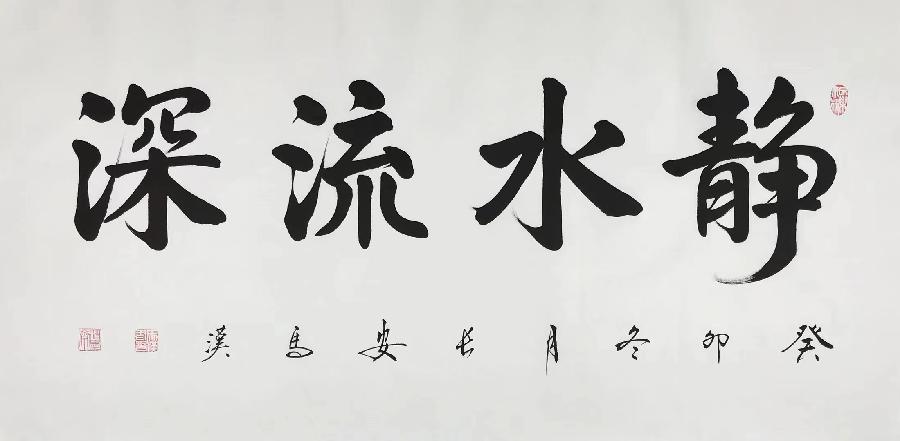 静水流深
癸卯冬月长安马汉